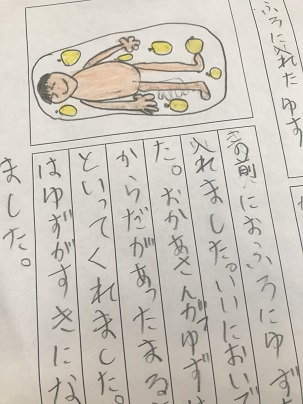 ふろに入れたゆず
の前におふろにゆず
入れました。いいにおいで
た。おかあさんがゆず
からだがあったまる
といってくれました。
はゆずがすきにな
ました。